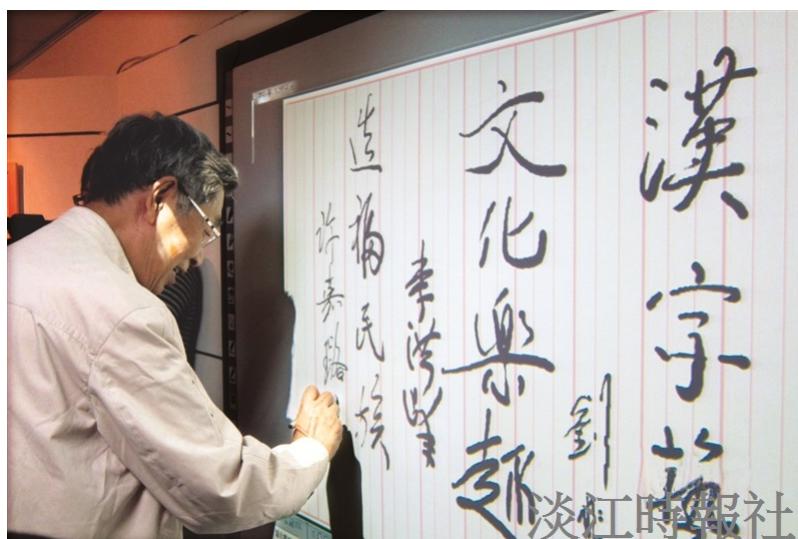 漢字
劉
文化樂趣
李
造福民族
许嘉璐
淡江時報社